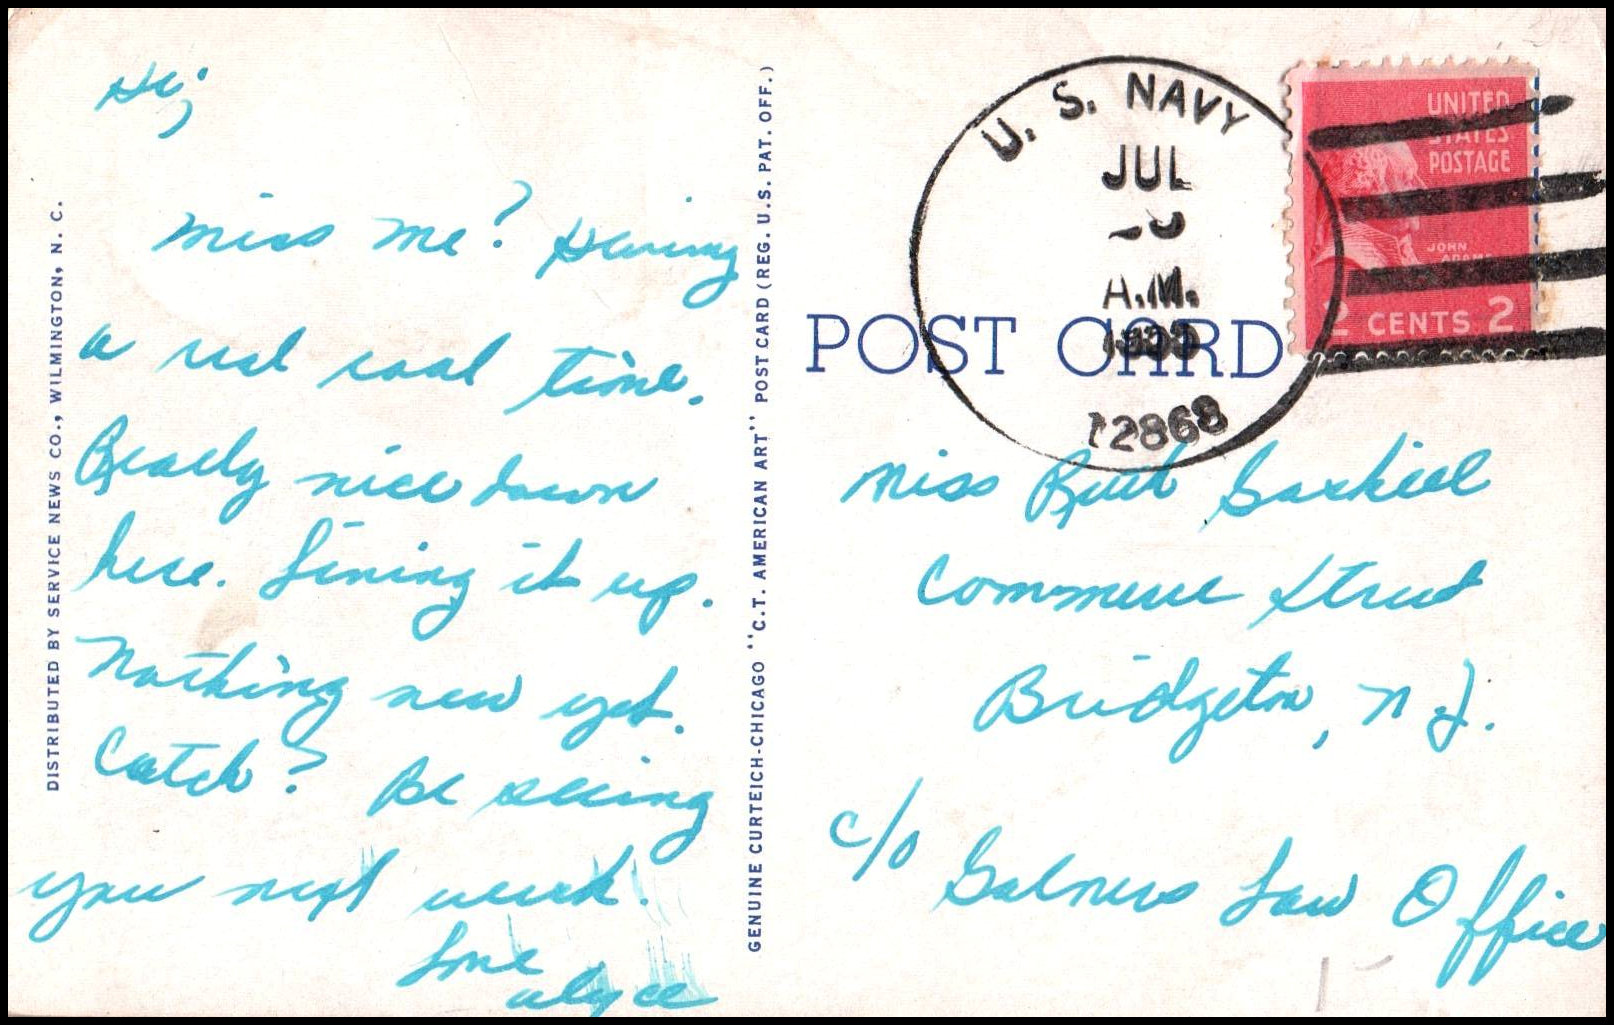 Hi,
Miss me? Having
a real cool time.
Really nice down
here. Living it up.
Nothing new yet.
Catch? Be seeing
you next week.
Love
Alyce
DISTRIBUTED BY SERVICE NEWS CO., WILMINGTON, N. C.
GENUINE CURTEICH-CHICAGO "C.T. AMERICAN ART" POST CARD (REG. U.S. PAT. OFF.)
POST CARD
U. S. NAVY
JUL
A.M.
12868
UNITED
STATES
POSTAGE
JOHN
ADAMS
2 CENTS 2
Miss Ruth
Commerce Street
Bridgeton, N.J.
c/o
Law Office